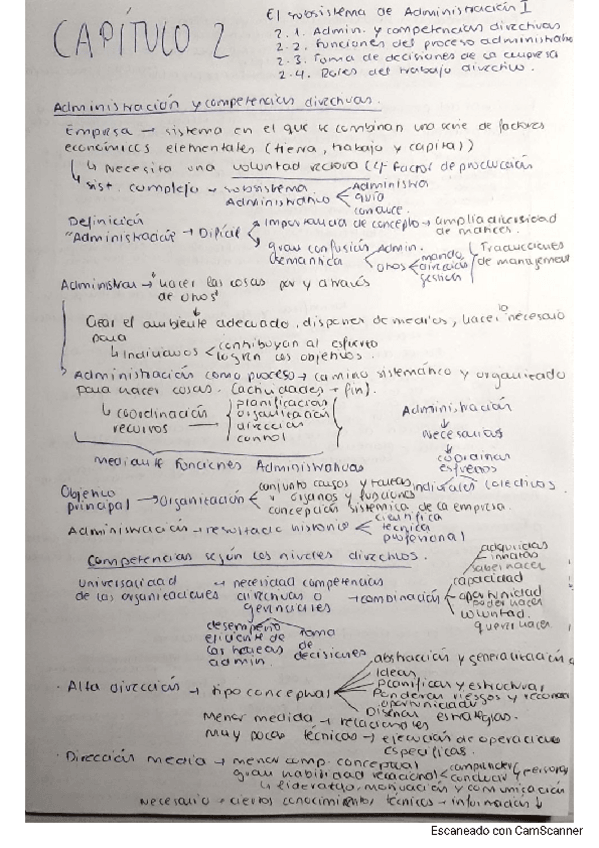 CAPÍTULO 2
El subsistema de Administración I
2.1. Admin. y competencias directivas
2.2. Funciones del proceso administrativo
2.3. Toma de decisiones de la empresa
2.4. Roles del trabajo directivo.
Administración y competencias directivas.
Empresa → sistema en el que se combinan una serie de factores
económicos elementales (tierra, trabajo y capital)
↳ Necesita una voluntad rectora (4º factor de producción
↳ sist. complejo → subsistema Administrativo
Administra
guía
conduce.
Definición "Administración" → Difícil
Importancia de concepto → amplia diversidad de matices.
gran confusión semántica
Admin.
otros
mando
dirección
gestión
Traducciones de management
Administrar → hacer las cosas por y a través de otros
Crear el ambiente adecuado, disponer de medios, hacer lo necesario
para
↳ Individuos
contribuyan al esfuerzo
logren los objetivos.
Administración como proceso → camino sistemático y organizado
para hacer cosas. (actividades + fin).
↳ coordinación recursos
planificación
organización
dirección
control
Mediante Funciones Administrativas
Administración
↓
Necesarias
↓
coordinar esfuerzos
individuales colectivos.
Objetivo principal → Organización
conjunto cargos y tareas
órganos y funciones
concepción sistémica de la empresa.
Administración → resultado histórico
científica
técnica
profesional
Competencias según los niveles directivos.
Universalidad de las organizaciones → necesidad competencias directivas o gerenciales → combinación
adquiridas
innatas
saber hacer
capacidad
oportunidad
poder hacer
voluntad.
querer hacer
desempeño eficiente de las tareas admin.
toma de decisiones
· Alta dirección → tipo conceptual
abstracción y generalización
ideas
planificar y estructurar
Ponderar riesgos y
oportunidades
Diseñar estrategias.
Menor medida → relacionales
Muy pocas técnicas → ejecución de operaciones
específicas.
· Dirección media → menor comp. conceptual
gran habilidad relacional
comprender y conducir personas
↳ liderazgo, motivación y comunicación
Necesario → ciertos conocimientos técnicos → información ↓
Escaneado con CamScanner